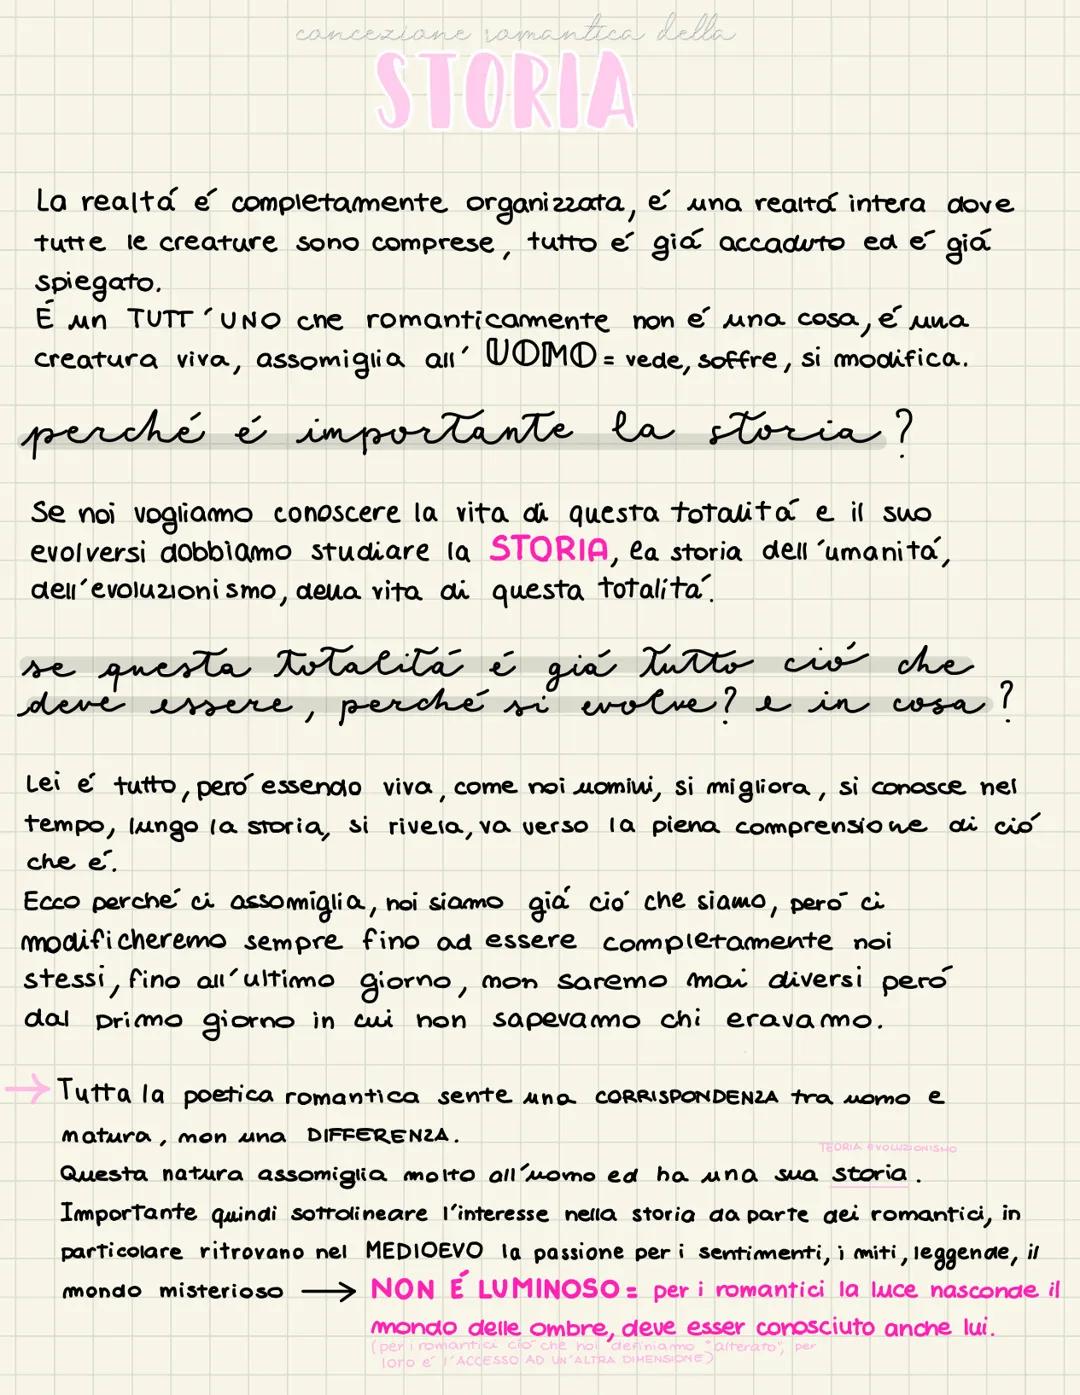 concezione romantica della
STORIA
La realtá é completamente organizzata, é una realtá intera dove
tutte le creature sono comprese, tutto é giá accaduto ed é giá
spiegato.
É un TUTT'UNO che romanticamente non é una cosa, é una
creatura viva, assomiglia all' UOMO = vede, soffre, si modifica.
perché é importante la storia?
Se noi vogliamo conoscere la vita di questa totalitá e il suo
evolversi dobbiamo studiare la STORIA, la storia dell'umanitá,
dell'evoluzionismo, della vita di questa totalitá.
se questa totalitá é giá tutto ció che
deve essere, perché si evolve? e in cosa?
Lei é tutto, peró essendo viva, come noi uomini, si migliora, si conosce nel
tempo, lungo la storia, si rivela, va verso la piena comprensione di ció
che é.
Ecco perché ci assomiglia, noi siamo giá ció che siamo, peró ci
modificheremo sempre fino ad essere completamente noi
stessi, fino all'ultimo giorno, non saremo mai diversi peró
dal primo giorno in cui non sapevamo chi eravamo.
→ Tutta la poetica romantica sente una CORRISPONDENZA tra uomo e
natura, non una DIFFERENZA.
TEORIA EVOLUZIONISMO
Questa natura assomiglia molto all'uomo ed ha una sua storia.
Importante quindi sottolineare l'interesse nella storia da parte dei romantici, in
particolare ritrovano nel MEDIOEVO la passione per i sentimenti, i miti, leggende, il
mondo misterioso → NON É LUMINOSO = per i romantici la luce nasconde il
mondo delle ombre, deve esser conosciuto anche lui.
(per i romantici ció che noi definiamo "alterato", per
loro é l'ACCESSO AD UN'ALTRA DIMENSIONE)